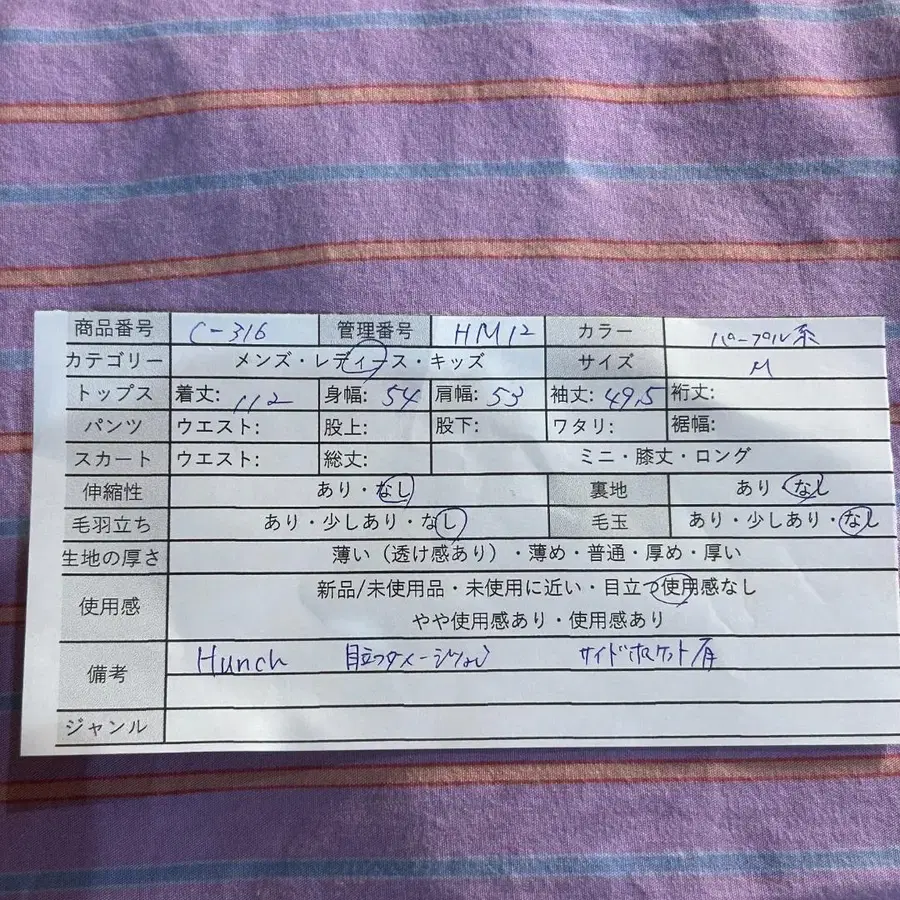 商品番号 C-316 管理番号 HM12 カラー パープル系
カテゴリー メンズ・レディース・キッズ サイズ M
トップス 着丈: 112 身幅: 54 肩幅: 53 袖丈: 49.5 裄丈:
パンツ ウエスト: 股上: 股下: ワタリ: 裾幅:
スカート ウエスト: 総丈: ミニ・膝丈・ロング
伸縮性 あり・なし 裏地 あり・なし
毛羽立ち あり・少しあり・なし 毛玉 あり・少しあり・なし
生地の厚さ 薄い(透け感あり)・薄め・普通・厚め・厚い
使用感 新品/未使用品・未使用に近い・目立つ使用感なし
やや使用感あり・使用感あり
備考 Hunch 目立つダメージなし サイドポケット有
ジャンル